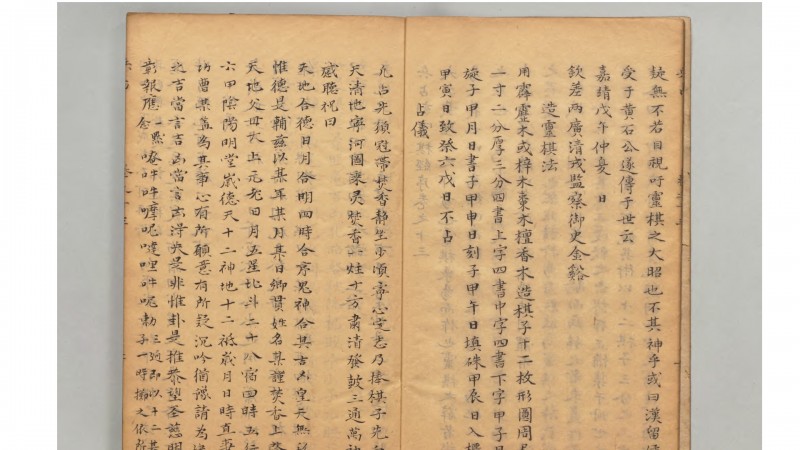 疑無不若目視吁靈棋之大昭也不其神乎或曰漢留
受子黄石公遂傳于世云
嘉靖戊午仲夏日
欽差两廣清戎監察御史金谿
造靈棋法
用霹靂木或梓木棗木檀香木造棋子十二枚形圓周
一寸二分厚三分四書上字四書中字四書下字甲子日
旋子甲月日書子甲申日刻子甲午日填硃甲辰日入
甲寅日致祭六戊日不占
占儀
凡占先須冠帶焚香静坐
天清地寧河國禀灵焚香一炷十方肅清發鼓三通萬
感聽祝曰
天地合德日月合明四時合序鬼神合其吉凶皇天無
惟德是輔兹以某年某月某日鄉貫姓名某謹焚香上
天地父母太上元老日月五星北斗二十八宿四時五
六甲陰陽明堂歲德天二十神地十二祗歲月日時直
訪曹禀盖為某事心有所願意有所疑沉吟猶豫請為
吉當言吉凶當言凶得失是非惟卦是推恭望圣慈明
彰報應念